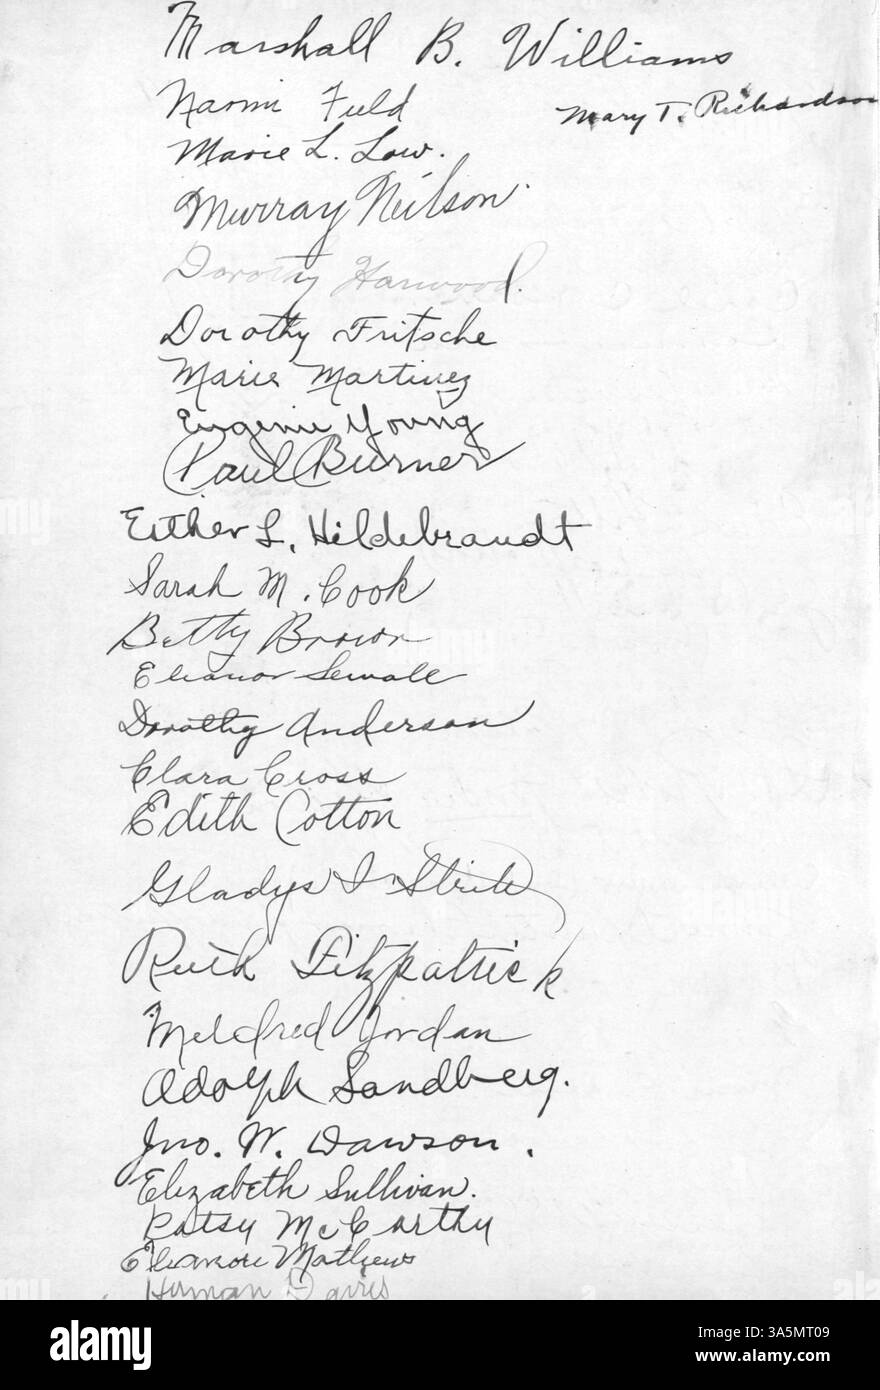 Marshall B. Williams
Naomi Fuld
Mary T. Richardson
Marie L. Low.
Murray Neilson.
Dorothy Harwood.
Dorothy Fritsche
Marie Martinez
Eugenie Young
Paul Burner
Esther L. Hildebrandt
Sarah M. Cook
Betty Brown
Eleanor Sewall
Dorothy Anderson
Clara Cross
Edith Cotton
Gladys I.
Ruth Fitzpatrick
Mildred Jordan
Adolph Sandberg.
Jno. W. Dawson.
Elizabeth Sullivan.
Patsy McCarthy
Eleanore Mathews
Herman Davis
alamy
Image ID: 3A5MT09
www.alamy.com